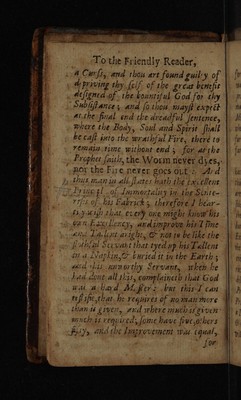 To the Friendly Reader,
a Curse, and thou art found guilty of
depriving thy self of the great benefit
designed of the bountiful God for thy
Subsistance; and so thou mayst expect
at the final end the dreadful sentence,
where the Body, Soul and Spirit shall
be cast into the wrathful Fire, there to
remain time without end; for as the
Prophet saith, the Worm never dyes,
nor the Fire never goes out: And
thus man in all states hath the excellent
of Immortality to the
of his Fabrick; therefore I hear-
ty wish that every one might know his
own Excellency, and improve his Time
and Tallent aright, & not to be like the
slothful Servant that tyed up his Tallent
in a Napkin, & buried it in the Earth;
and this unworthy Servant, when he
had done all this, complaineth that God
was a hard Master: but this I can
testifie, that he requires of no man more
than is given, and where much is given
much is required; some have five, others
and the Improvement was equal,
for